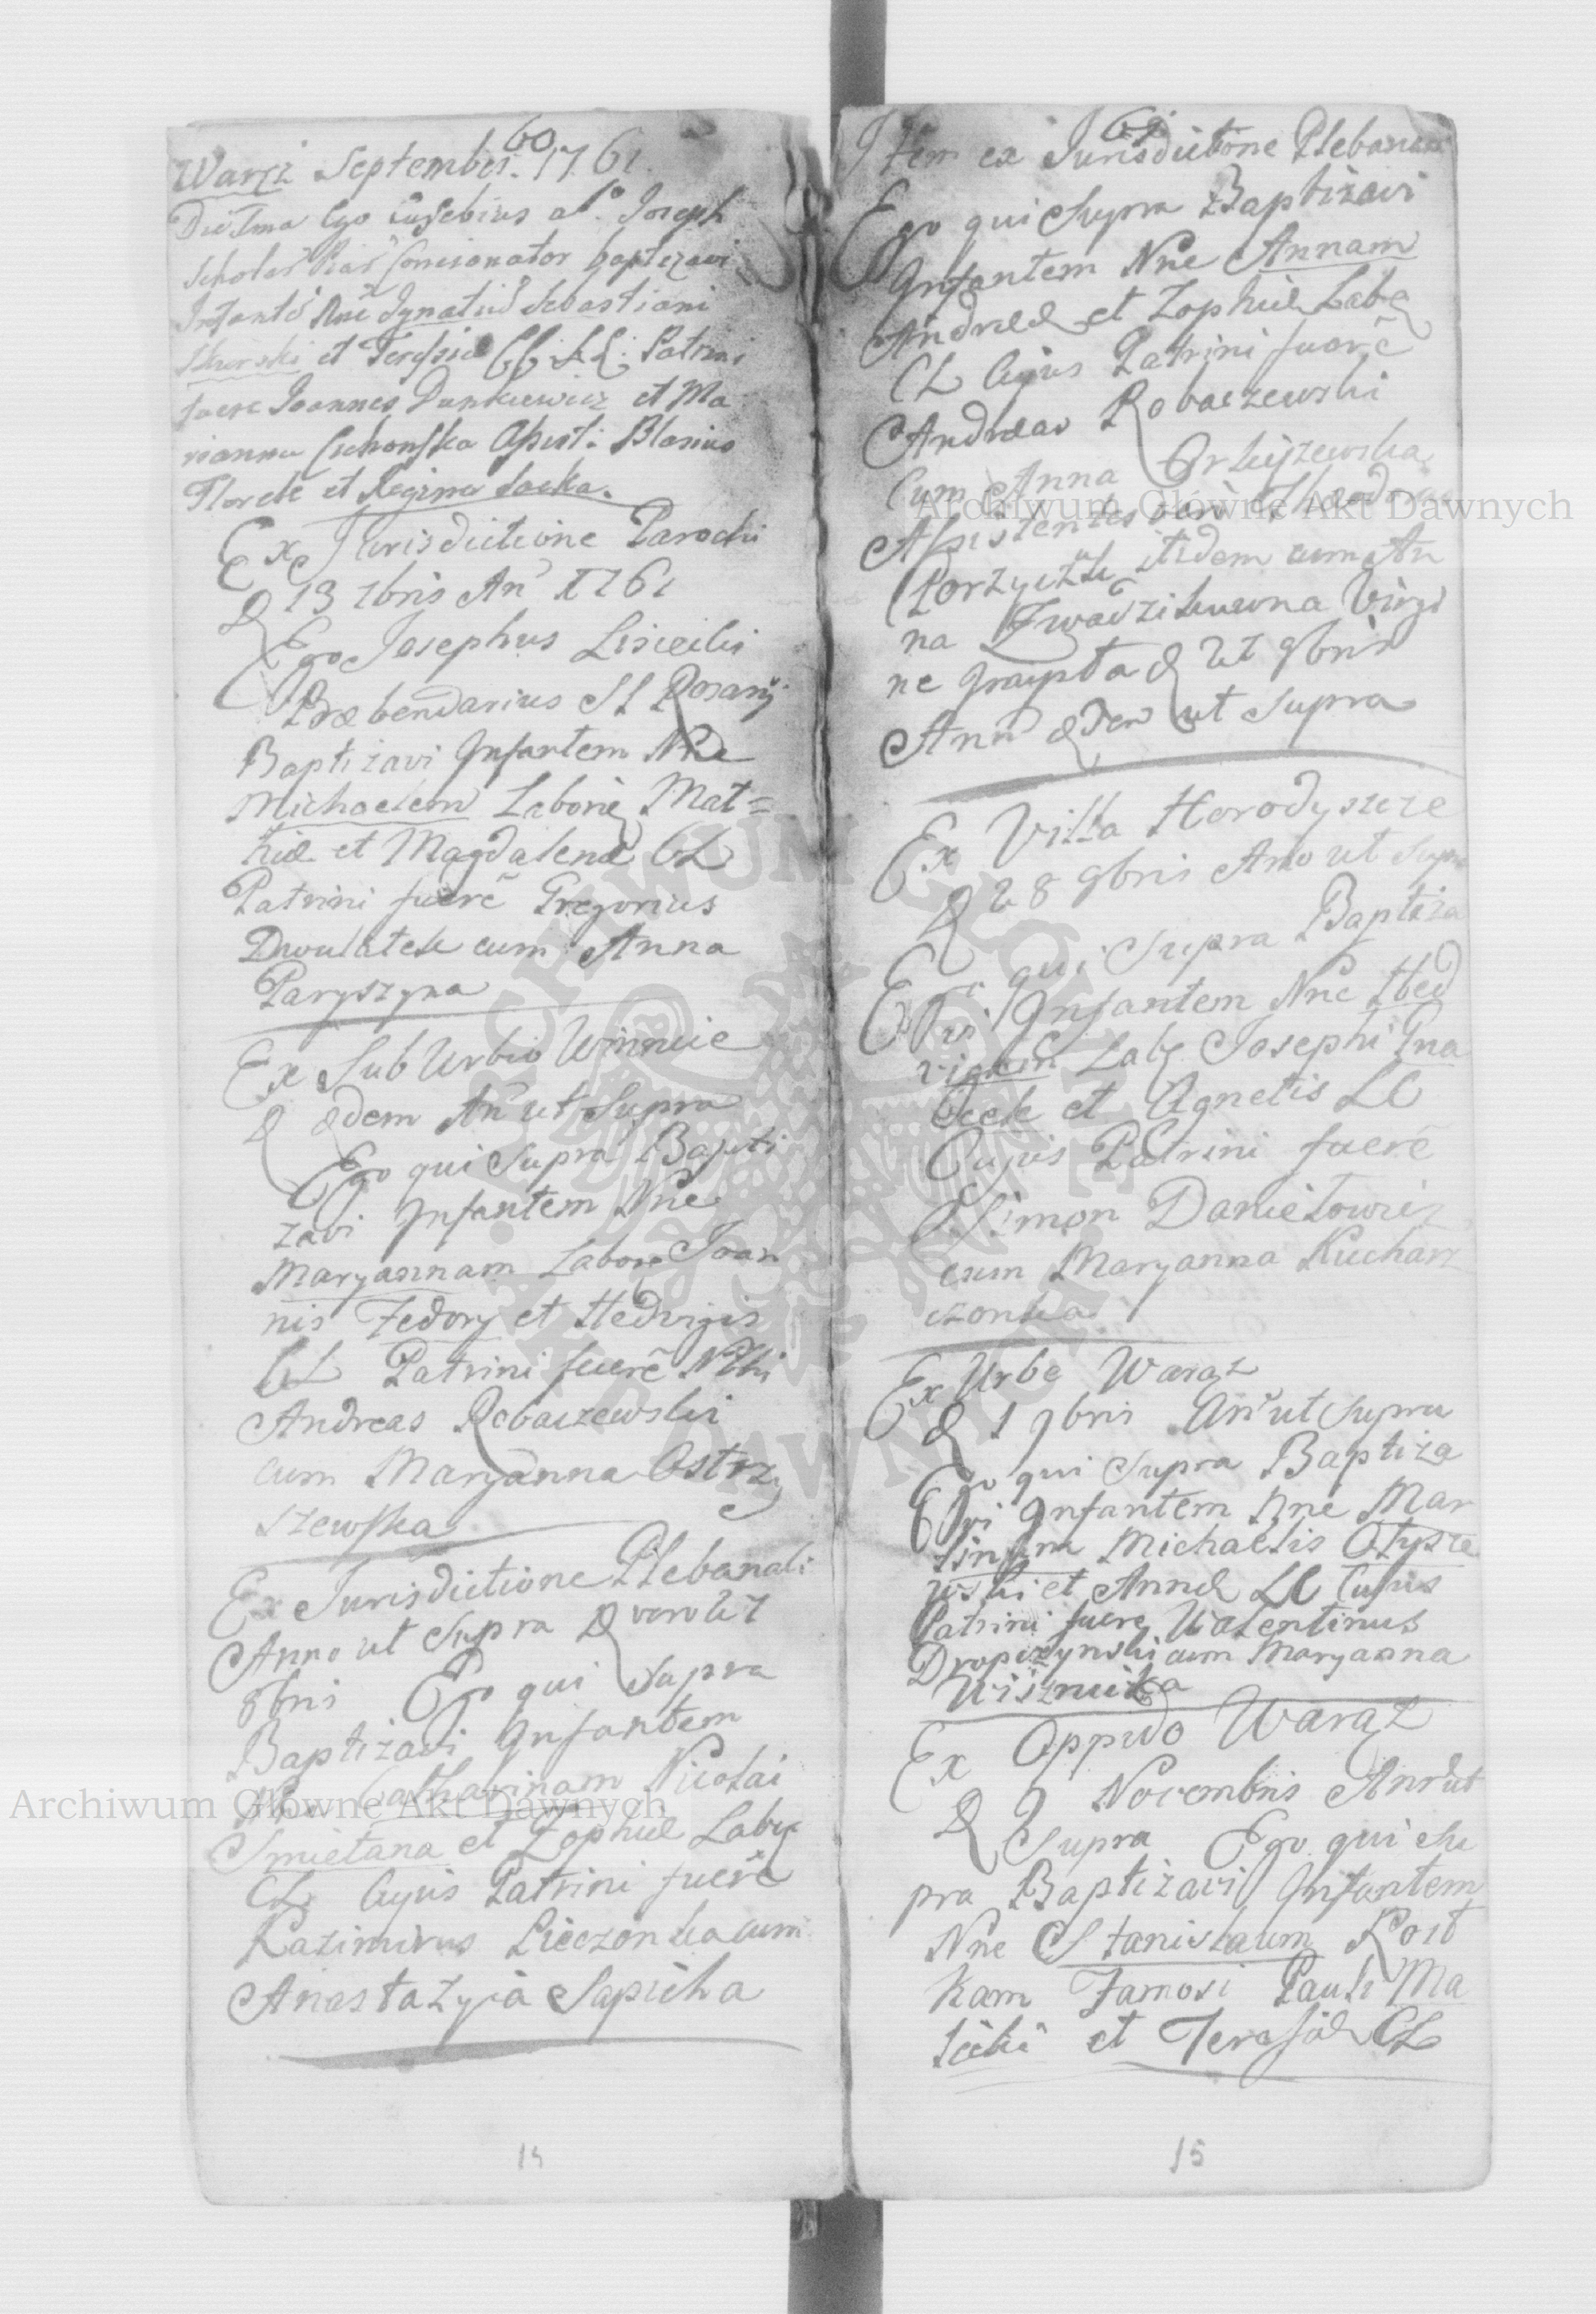 60
Warzi September. 1761.
Die Ima Ego Eusebius a S. Joseph
Scholar Piar Concionator baptizavi
Infante Nne Ignatiu Sebastiani
et Teressie CC. LL. Patrini
fuere Joannes Dunkiewicz et Ma
rianna Cichonska Assist: Blasius
Florek et Regina Łacka.
Ex Jurisdictione Parochi
D 13 7bris An 1761
Ego Josephus Lisiecki
Præbendarius SS Rosarij
Baptizavi Infantem Nne
Michaelem Laborię Mat=
hiæ et Magdalenæ CL
Patrini fuerẽ Gregorius
Dwulatek cum Anna
Paryszyna
Ex Sub Urbio Winnice
D ædem An ut Supra
Ego qui Supra Bapti
zavi Infantem Nne
Maryannam Labor Joan
nis Fedory et Hedvigis
CL Patrini fuerẽ Nbli
Andreas Robaczewski
cum Maryanna Ostrzy
szewska
Ex Jurisdictione Plebanali
Anno ut Supra D vero 27
8bris Ego qui Supra
Baptizavi Infantem
Nne Catharinam Nicolai
Smietana et Zophiæ Labę
CL Cujus Patrini fuerẽ
Kazimirus Lieczonka cum
Anastazyia Sapicha
14
61
Item ex Jurisdictione Plebanali
Ego qui Supra Baptizavi
Infantem Nne Annam
Andreæ et Zophiæ Labę
CL Cujus Patrini fuerẽ
Andreas Robaczewski
Cum Anna Orłyszewska
Assistentes vero Theodorus
Porzycki itidem cum An
na Virgi
ne D 27 8bris
Ann ut Supra
Ex Villa Horodyszcze
D 28 8bris Anno ut Supra
Ego qui Supra Baptiza
vi Infantem Nne Hed
vigem Labę Josephi Gna
cek et Agnetis LC
Cujus Patrini fuerẽ
Simon Daniełowicz
cum Maryanna Kucharz
czonka
Ex Urbe Waręz
D 1 9bris An ut Supra
Ego qui Supra Baptiza
vi Infantem Nne Mar
tinum Michaelis Otysze
wski et Annæ LC Cujus
Patrini fuere Walentinus
Dropczynski cum Maryanna
Wisznicka
Ex Oppido Waręz
D 9 Novembris Ann ut
Supra Ego qui Su
pra Baptizavi Infantem
Nne Stanisłaum Kost
kam Famosi Pauli Ma
łecki et Teressiæ CL
15
Archiwum Główne Akt Dawnych
Archiwum Główne Akt Dawnych
ARCHIWUM GŁÓWNE AKT DAWNYCH